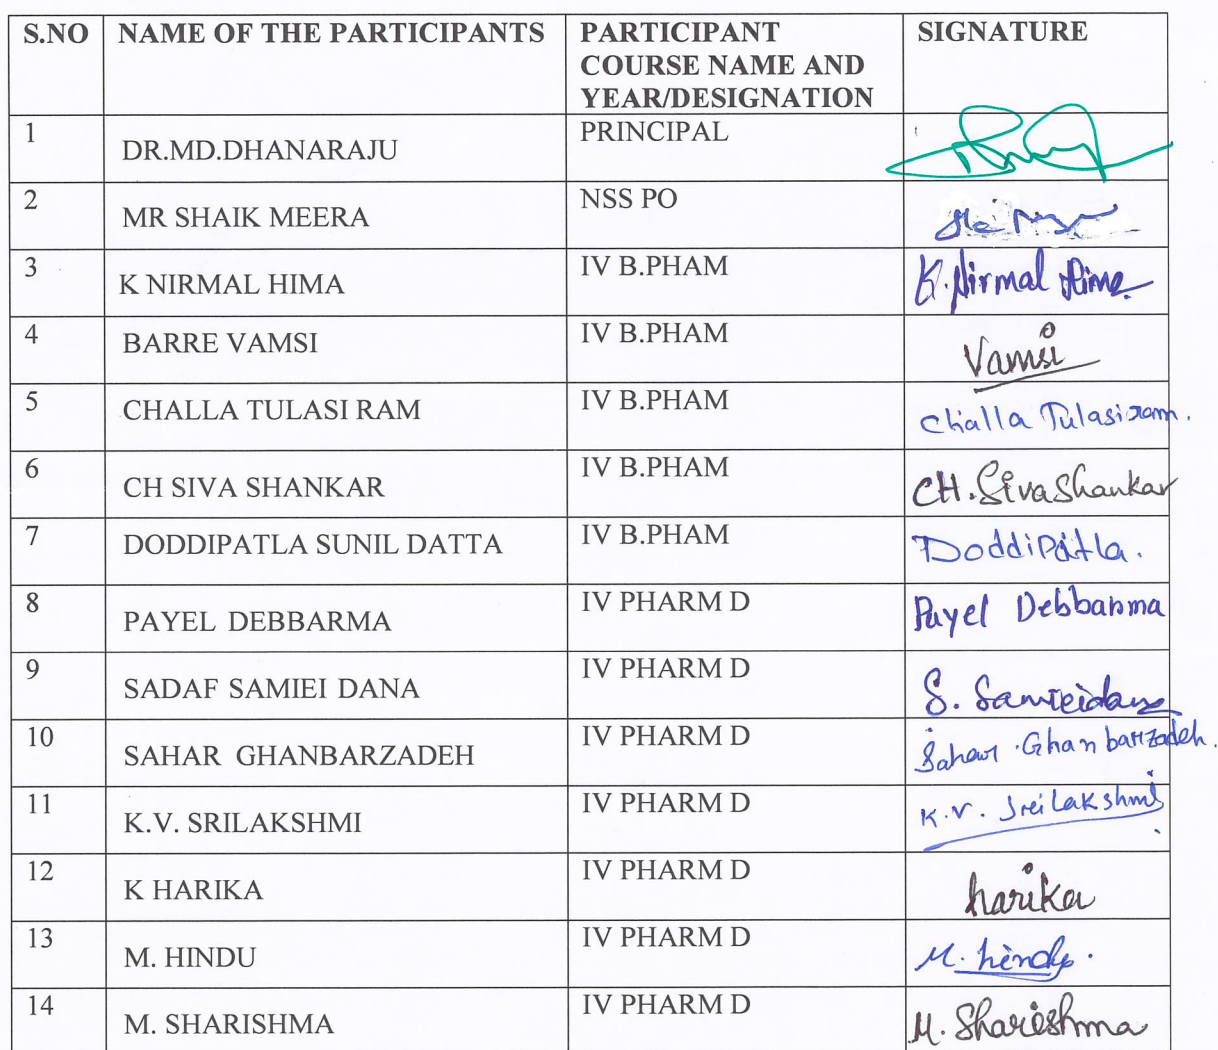 S.NO NAME OF THE PARTICIPANTS PARTICIPANT COURSE NAME AND YEAR/DESIGNATION SIGNATURE
1 DR.MD.DHANARAJU PRINCIPAL
2 MR SHAIK MEERA NSS PO
3 K NIRMAL HIMA IV B.PHAM K. Nirmal Hima
4 BARRE VAMSI IV B.PHAM Vamsi
5 CHALLA TULASI RAM IV B.PHAM Challa Tulasiram.
6 CH SIVA SHANKAR IV B.PHAM CH. Siva Shankar
7 DODDIPATLA SUNIL DATTA IV B.PHAM Doddipatla.
8 PAYEL DEBBARMA IV PHARM D Payel Debbarma
9 SADAF SAMIEI DANA IV PHARM D S. Samieidana
10 SAHAR GHANBARZADEH IV PHARM D Sahar Ghanbarzadeh.
11 K.V. SRILAKSHMI IV PHARM D K.V. Sreilakshmi
12 K HARIKA IV PHARM D harika
13 M. HINDU IV PHARM D M. hindu.
14 M. SHARISHMA IV PHARM D M. Sharishma